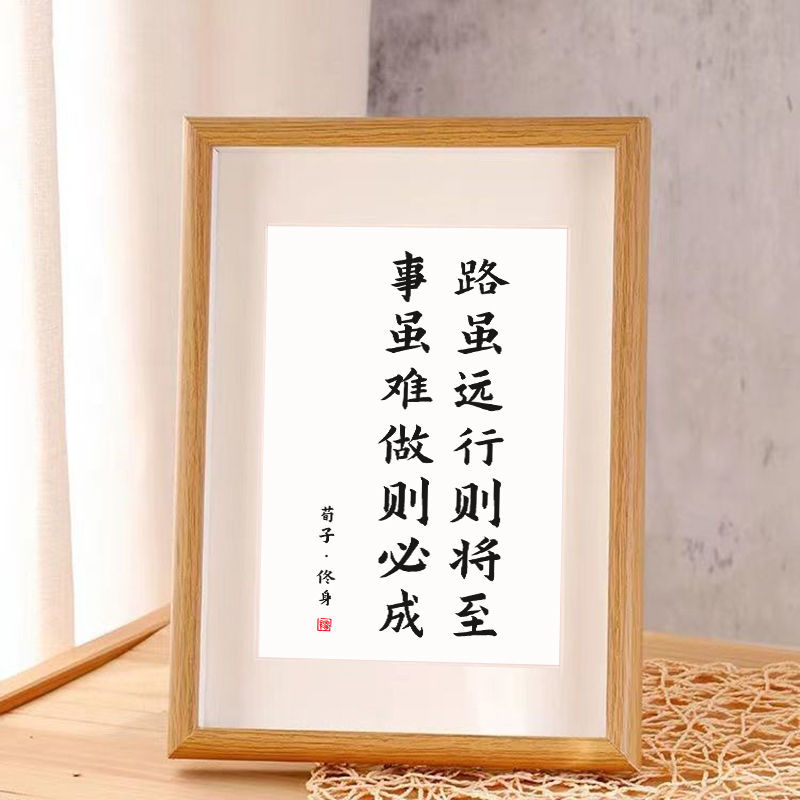 路虽远行则将至
事虽难做则必成
荀子·佟身